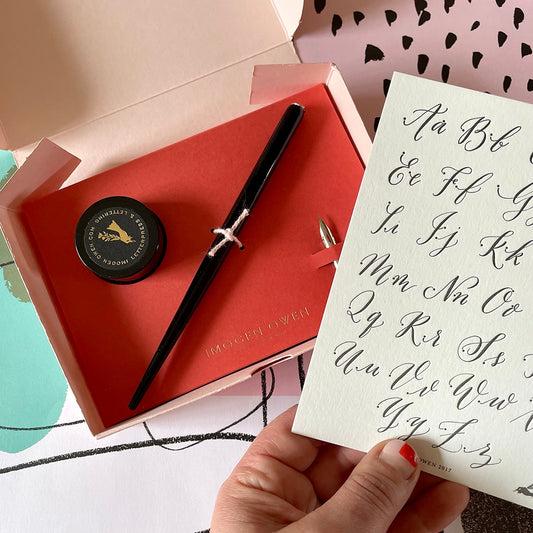 LETTERPRESS & LETTERING
IMOGENOWEN.COM
IMOGEN OWEN
Aa Bb
Ee Ff Gg
Ii Jj Kk
Mm Nn Oo
Qq Rr Ss
Uu Vv Ww
Yy Zz
OWEN 2017